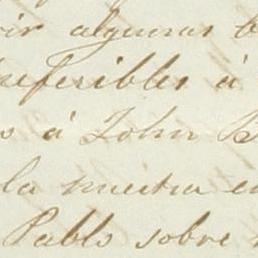 ir algunas b
referibles á
s á John B
la nuestra en
Pablo sobre